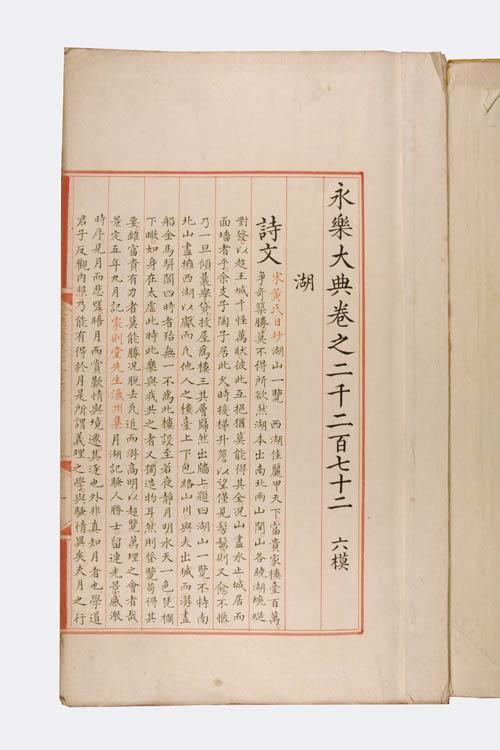 永樂大典卷之二千二百七十二 六模
湖
詩文 宋黃氏日抄 湖山一覽 西湖佳麗甲天下富貴家樓臺百萬
爭奇築勝莫不得所欲然湖本出南北兩山間山各繞湖蜿蜒
對發以趨王城千怪萬狀彼此互挹猶莫能得其全况山盡水止城居而
面墻者乎余友子陶子居此久時接梯升簷以望僅見髣髴則又愈不愜
乃一旦傾囊舉貸拔屋爲樓三其層巋然出牆上題曰湖山一覽不特南
北山盡擁西湖以獻而凡他人之樓臺上下包絡山川與夫出城而游畫
船金馬駢闐四時者殆無一不爲此樓設至若夜靜月明水天一色凭欄
下瞰如身在太虛此時此樂與我共之者又獨造物耳然則登覽苟得其
要雖富貴有力者莫能勝况脫去凡近而游高明以超覽萬理之會者哉
景定五年九月記 家則堂先生瀛州集 月湖記騷人勝士留連光景感激
時序見月而悲晤月而賞歎情與境遷其逐也外非真知月者也學道
君子反觀內照乃能有得於月是所謂義理之學與騷情異矣夫月之行